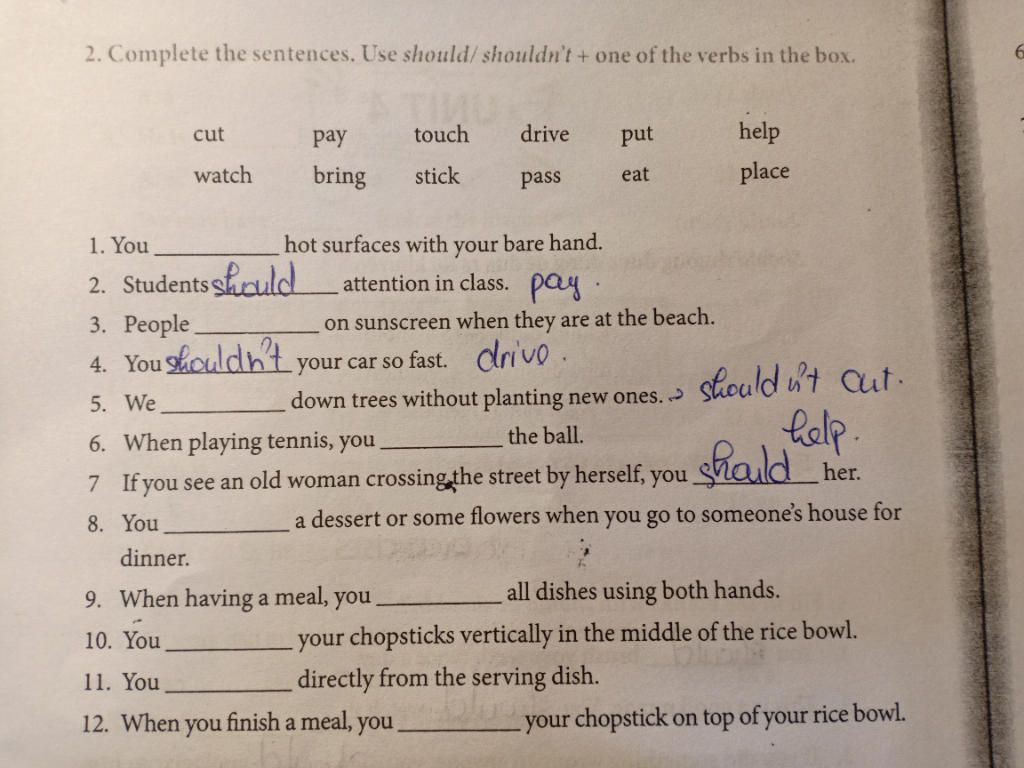 2. Complete the sentences. Use should/ shouldn't + one of the verbs in the box.
cut pay touch drive put help
watch bring stick pass eat place
1. You ____________ hot surfaces with your bare hand.
2. Students should____ attention in class. pay.
3. People ____________ on sunscreen when they are at the beach.
4. You shouldn't your car so fast. drive.
5. We ____________ down trees without planting new ones. → shouldn't cut.
6. When playing tennis, you ____________ the ball.
help.
7 If you see an old woman crossing the street by herself, you should her.
8. You ____________ a dessert or some flowers when you go to someone's house for
dinner.
9. When having a meal, you ____________ all dishes using both hands.
10. You ____________ your chopsticks vertically in the middle of the rice bowl.
11. You ____________ directly from the serving dish.
12. When you finish a meal, you ____________ your chopstick on top of your rice bowl.